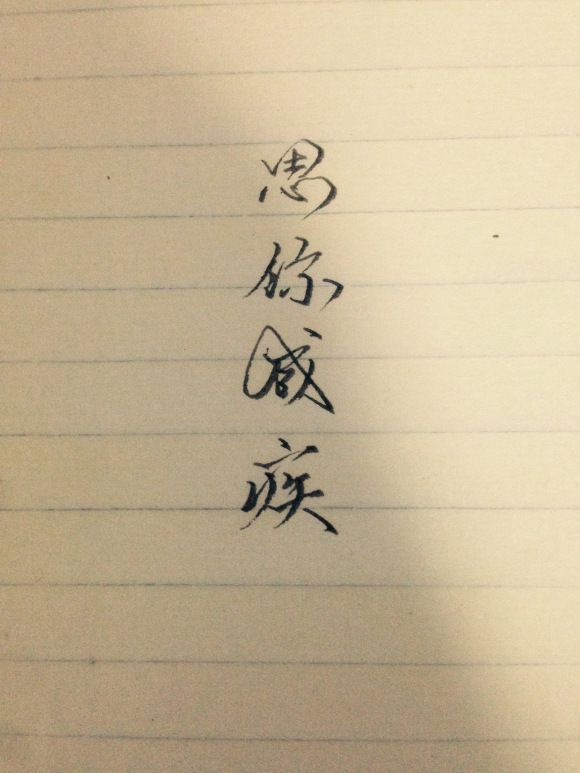 思你成疾